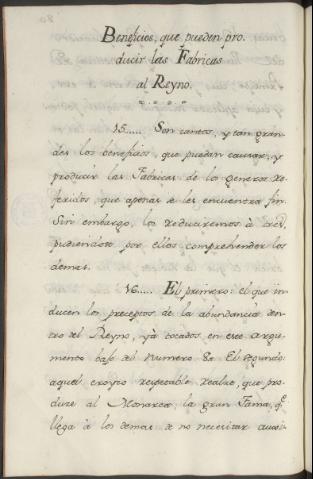 Beneficios, que pueden pro-
ducir las Fabricas
al Reyno.
15..... Son tantos, y tan gran-
des los beneficios, que puedan causar, y
producir las Fabricas de los generos re-
feridos, que apenas se les encuentra fin.
Sin embargo, los reduciremos à tres,
pudiendose por ellos comprehender los
demas.
16..... El primero: el que in-
ducen los preceptos de la abundancia den-
tro del Reyno, yà tocados en este argu-
mento baxo del numero 8º El segundo:
aquel respetable realze, que pro-
duze al Monarca, la gran Fama, qe.
llega à los demas de no necesitar auxi-